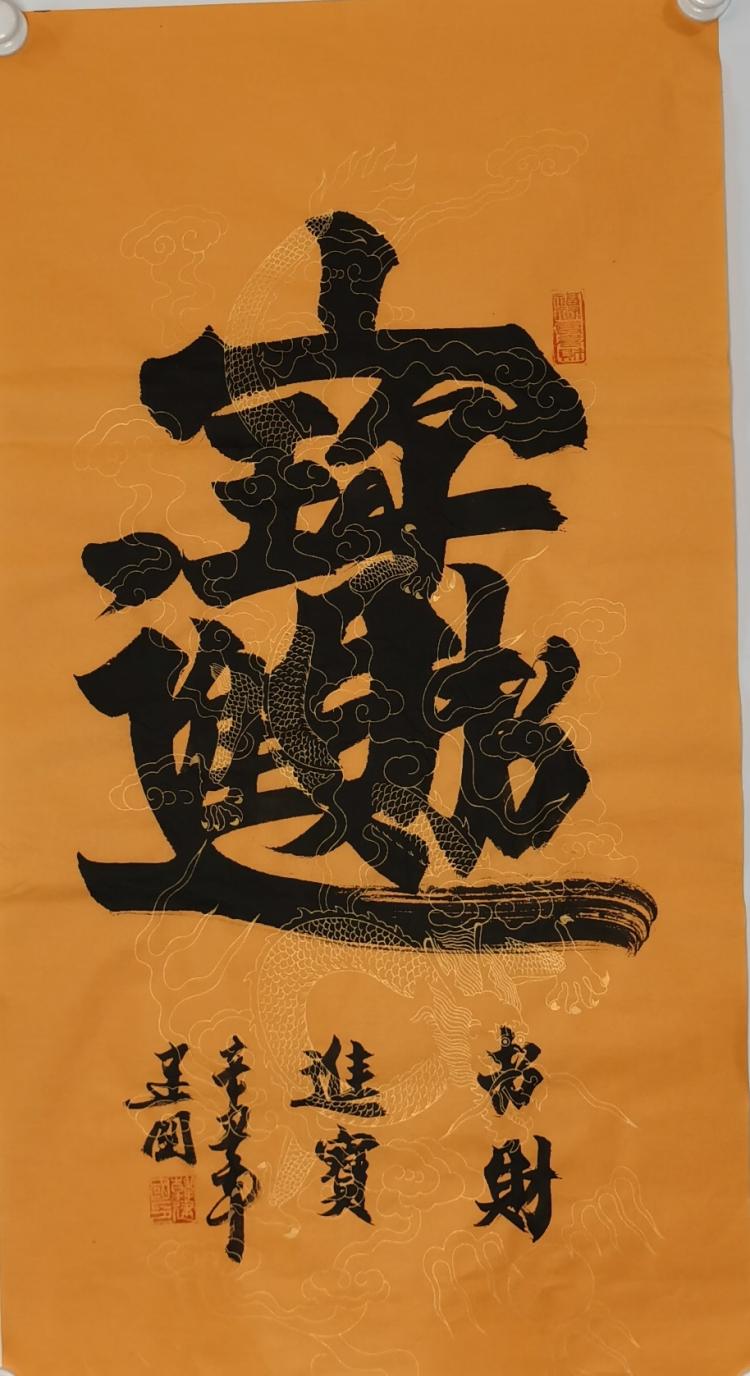 招財進寶
招財
進寶
辛丑年
建國